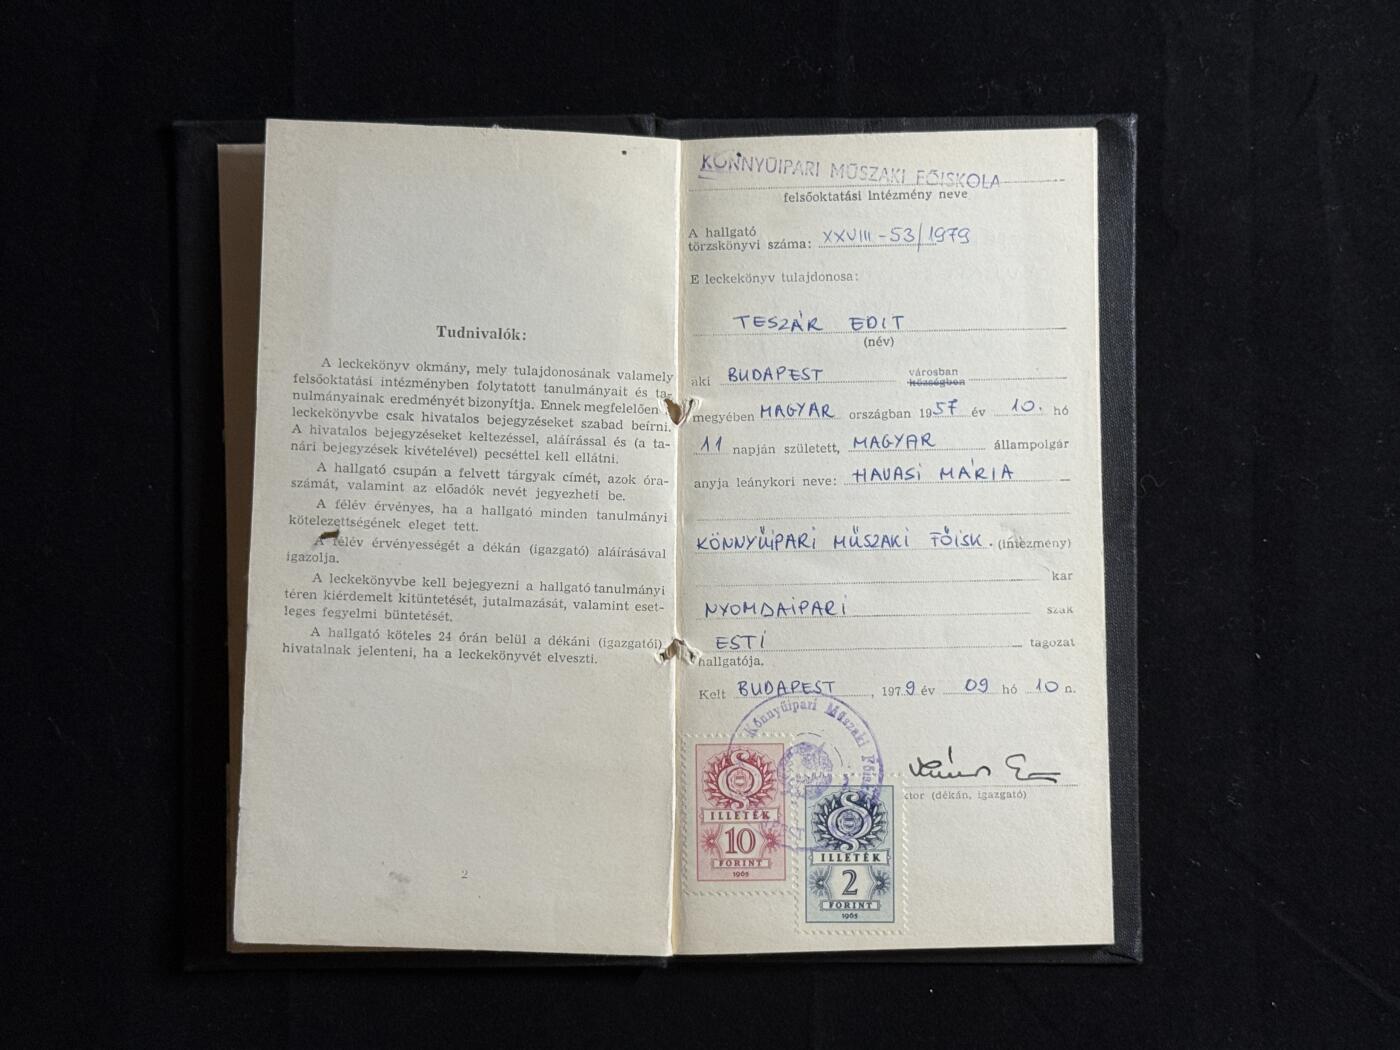 Tudnivalók:
A leckekönyv okmány, mely tulajdonosának valamely
felsőoktatási intézményben folytatott tanulmányait és ta-
nulmányainak eredményét bizonyítja. Ennek megfelelően a
leckekönyvbe csak hivatalos bejegyzéseket szabad beírni.
A hivatalos bejegyzéseket keltezéssel, aláírással és (a ta-
nári bejegyzések kivételével) pecséttel kell ellátni.
A hallgató csupán a felvett tárgyak címét, azok óra-
számát, valamint az előadók nevét jegyezheti be.
A félév érvényes, ha a hallgató minden tanulmányi
kötelezettségének eleget tett.
A félév érvényességét a dékán (igazgató) aláírásával
igazolja.
A leckekönyvbe kell bejegyezni a hallgató tanulmányi
téren kiérdemelt kitüntetését, jutalmazását, valamint eset-
leges fegyelmi büntetését.
A hallgató köteles 24 órán belül a dékáni (igazgatói)
hivatalnak jelenteni, ha a leckekönyvét elveszti.
2
KÖNNYŰIPARI MŰSZAKI FŐISKOLA
felsőoktatási intézmény neve
A hallgató
törzskönyvi száma: XXVIII-53/1979
E leckekönyv tulajdonosa:
TESZÁR EDIT
(név)
aki BUDAPEST városban
községben
megyében MAGYAR országban 1957 év 10. hó
11 napján született, MAGYAR állampolgár
anyja leánykori neve: HAVASI MÁRIA
KÖNNYŰIPARI MŰSZAKI FŐISK. (intézmény)
kar
NYOMDAIPARI szak
ESTI tagozat
hallgatója.
Kelt BUDAPEST, 1979 év 09 hó 10 n.
Könnyűipari Műszaki Főisk
ctor (dékán, igazgató)
ILLETÉK
10
FORINT
1965
ILLETÉK
2
FORINT
1965